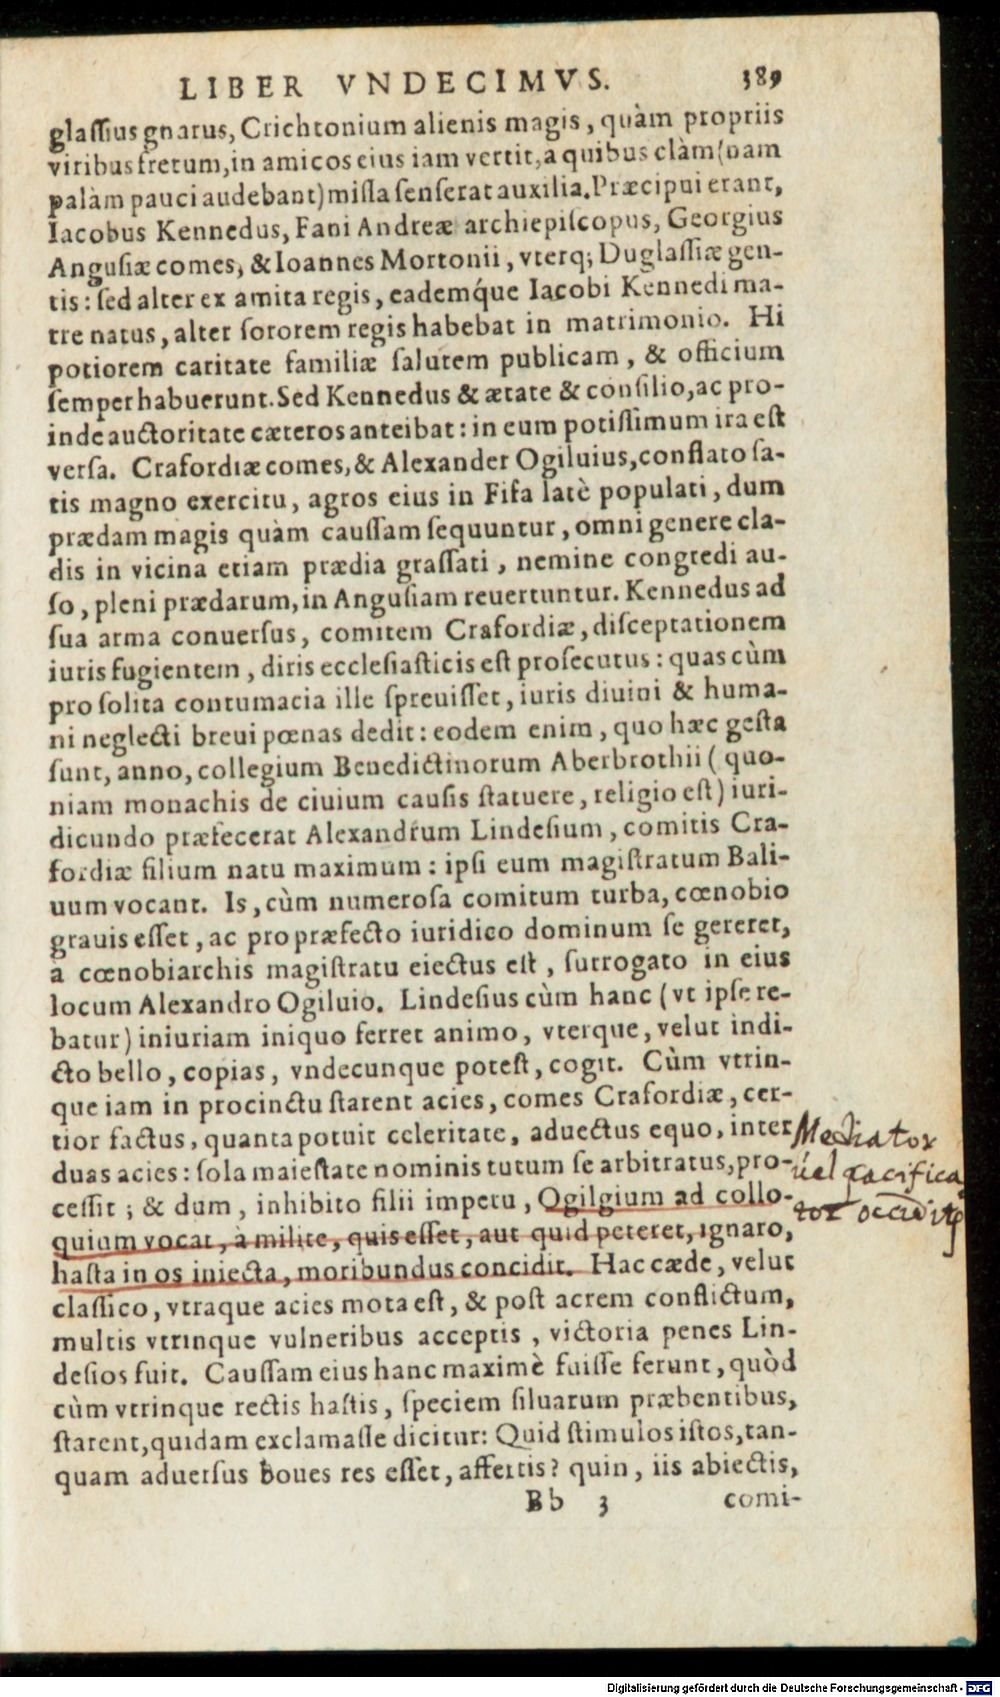 LIBER VNDECIMVS. 389
glaſſius gnarus, Crichtonium alienis magis, quàm propriis
viribus fretum, in amicos eius iam vertit, a quibus clàm (nam
palàm pauci audebant) miſſa ſenſerat auxilia. Præcipui erant,
Iacobus Kennedus, Fani Andreæ archiepiſcopus, Georgius
Anguſiæ comes, & Ioannes Mortonii, vterq; Duglaſſiæ gen-
tis: ſed alter ex amita regis, eademq́ue Iacobi Kennedi ma-
tre natus, alter ſororem regis habebat in matrimonio. Hi
potiorem caritate familiæ ſalutem publicam, & officium
ſemper habuerunt. Sed Kennedus & ætate & conſilio, ac pro-
inde auctoritate cæteros anteibat: in eum potiſſimum ira eſt
verſa. Crafordiæ comes, & Alexander Ogiluius, conflato ſa-
tis magno exercitu, agros eius in Fifa latè populati, dum
prædam magis quàm cauſſam ſequuntur, omni genere cla-
dis in vicina etiam prædia graſſati, nemine congredi au-
ſo, pleni prædarum, in Anguſiam reuertuntur. Kennedus ad
ſua arma conuerſus, comitem Crafordiæ, diſceptationem
iuris fugientem, diris eccleſiaſticis eſt proſecutus: quas cùm
pro ſolita contumacia ille ſpreuiſſet, iuris diuini & huma-
ni neglecti breui pœnas dedit: eodem enim, quo hæc geſta
ſunt, anno, collegium Benedictinorum Aberbrothii (quo-
niam monachis de ciuium cauſis ſtatuere, religio eſt) iuri-
dicundo præfecerat Alexandrum Lindeſium, comitis Cra-
fordiæ filium natu maximum: ipſi eum magiſtratum Bali-
uum vocant. Is, cùm numeroſa comitum turba, cœnobio
grauis eſſet, ac pro præfecto iuridico dominum ſe gereret,
a cœnobiarchis magiſtratu eiectus eſt, ſurrogato in eius
locum Alexandro Ogiluio. Lindeſius cùm hanc (vt ipſe re-
batur) iniuriam iniquo ferret animo, vterque, velut indi-
cto bello, copias, vndecunque poteſt, cogit. Cùm vtrin-
que iam in procinctu ſtarent acies, comes Crafordiæ, cer-
tior factus, quanta potuit celeritate, aduectus equo, inter
duas acies: ſola maieſtate nominis tutum ſe arbitratus, pro-
ceſſit; & dum, inhibito filii impetu, Ogilgium ad collo-
quium vocat, à milite, quis eſſet, aut quid peteret, ignaro,
haſta in os iniecta, moribundus concidit. Hac cæde, velut
claſſico, vtraque acies mota eſt, & poſt acrem conflictum,
multis vtrinque vulneribus acceptis, victoria penes Lin-
deſios fuit. Cauſſam eius hanc maximè fuiſſe ferunt, quòd
cùm vtrinque rectis haſtis, ſpeciem ſiluarum præbentibus,
ſtarent, quidam exclamaſſe dicitur: Quid ſtimulos iſtos, tan-
quam aduerſus boues res eſſet, affertis? quin, iis abiectis,
Bb 3 comi-
Mediator
uel pacifica
tor occidit
Digitalisierung gefördert durch die Deutsche Forschungsgemeinschaft - DFG